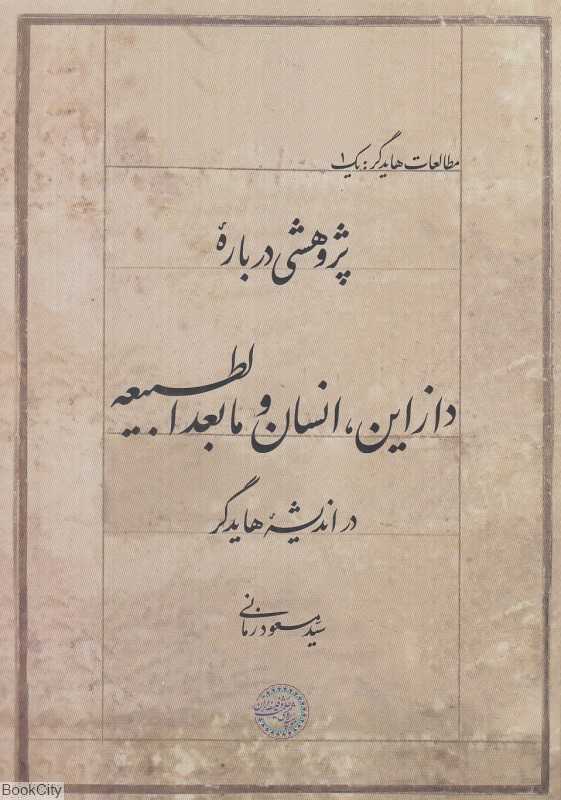 مطالعات هایدگر: یک ۱
پژوهشی دربارهٔ
دازاین، انسان و مابعدالطبیعه
در اندیشهٔ هایدگر
سیّد مسعود زمانی
BookCity